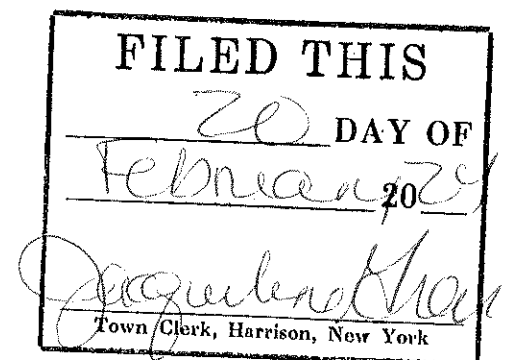 FILED THIS
20 DAY OF
February, 20
Jacqueline
Town Clerk, Harrison, New York